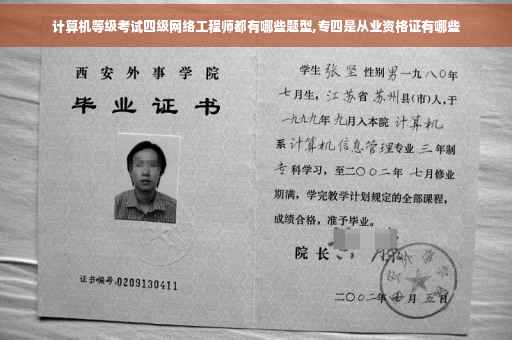 计算机等级考试四级网络工程师都有哪些题型,专四是从业资格证有哪些
西安外事学院
毕业证书
证书编号:0209130411
学生 张坚 性别男一九八〇年
七月生, 江苏省 苏州县(市)人,于
一九九九年 九月入本院 计算机
系 计算机信息管理专业 三 年制
专 科学习, 至二〇〇二年 七月修业
期满, 学完教学计划规定的全部课程,
成绩合格, 准予毕业。
院长
二〇〇二年 七 月 五 日